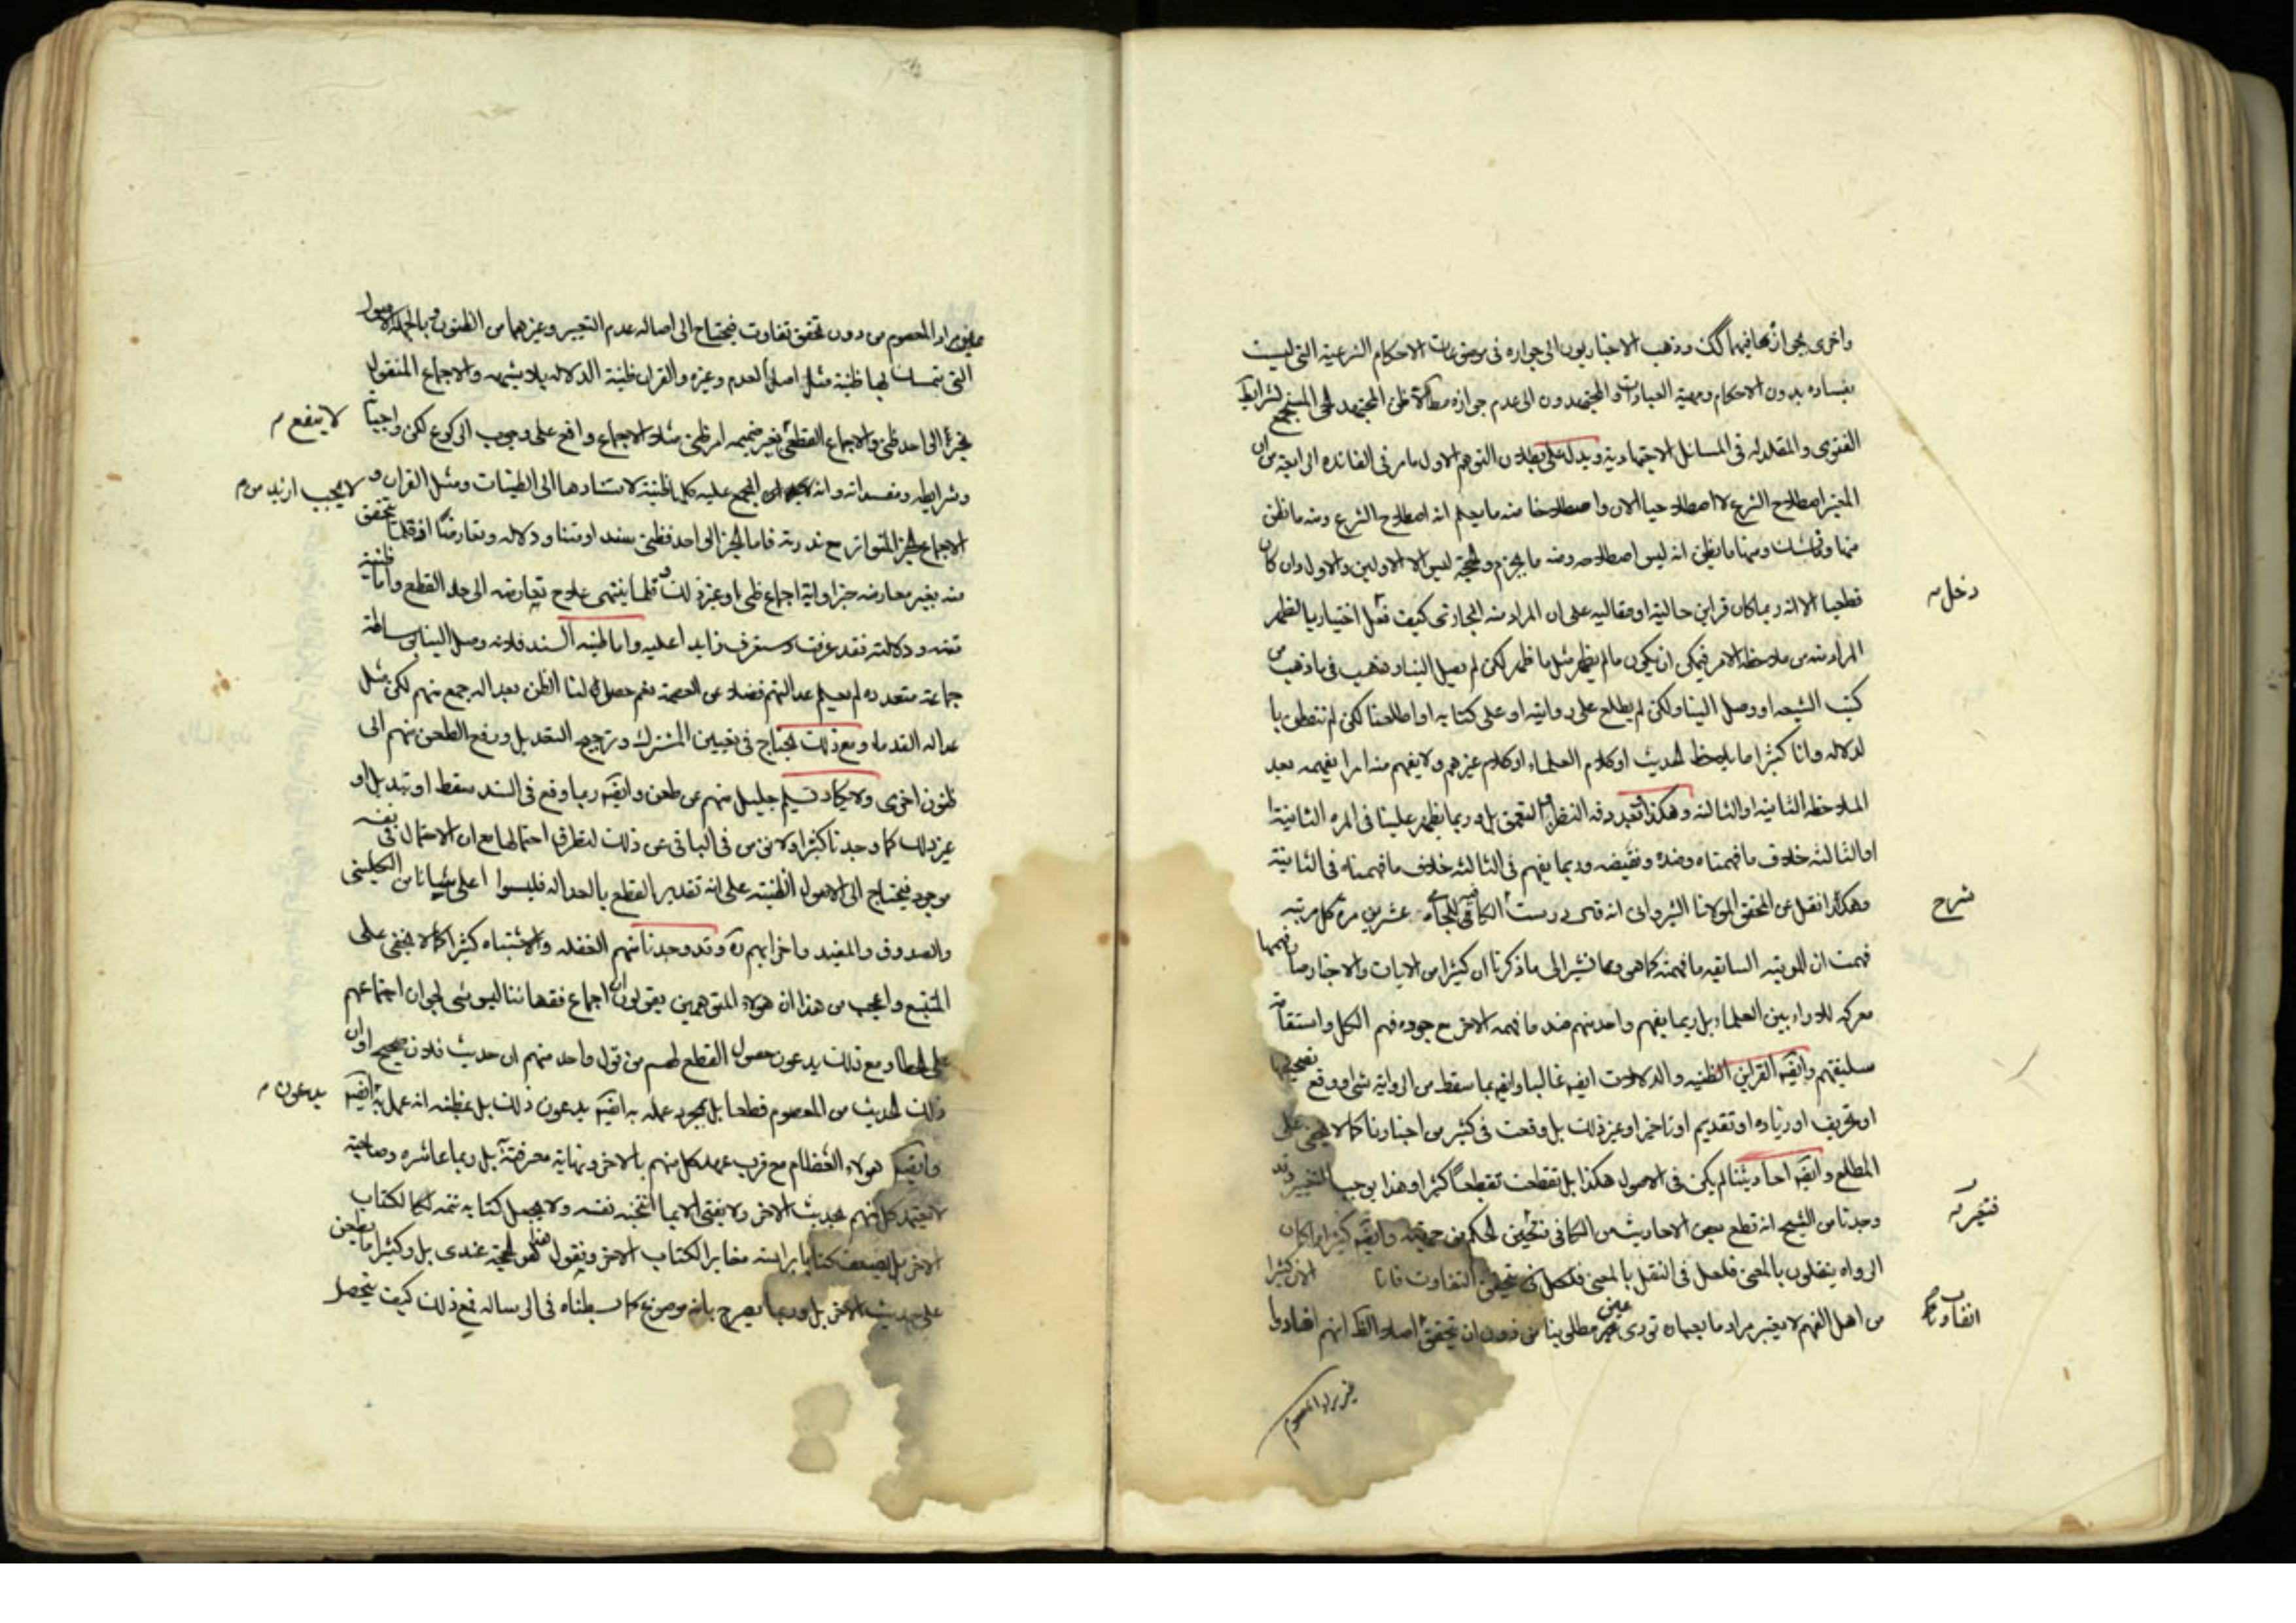 واخرى بجوازها فيهما كك وذهب الاخباريون الى جوازه فى موضوعات الاحكام الشرعية التى ليست
بفساده بدون الاحكام العبادات والمجتهدون الى عدم جوازه مطلقا ظن المجتهد الحى المستجمع لشرايط
الفتوى والمقلد له فى المسائل الاجتهادية ويدل على بطلان التوهم الاول ما مر فى الفائدة الرابعة من ان
المعتبر اصطلاح الشرع لا اصطلاحنا الان واصطلاحنا منه ما يعلم انه اصطلاح الشرع ومنه ما نظن
منها ومنها ما يظن انه ليس اصطلاحه ومنه ما يجزم والحجة ليس الا الاولين والاول وان كان
قطعيا الا انه ربما كان قراين حالية او مقالية على ان المراد منه المجازى كيف فعل اختيار يا لظهر
المراد منه من ملاحظة الامر فيمكن ان يكون ما لم يظهر مثل ما ظهر لكن لم يصل الينا وذهب فى ما ذهب من
كتب الشيعه او وصل الينا ولكن لم يطلع على روايته او على كتابه او اطلعنا لكن لم نتفطن با
لدلاله وانا كثيرا ما يلاحظ الحديث او كلام العلماء او كلام غيرهم ولا يفهم منه امرا يفهمه بعد
الملاحظه الثانيه او الثالثه وهكذا بعد دقه النظر والتعمق بل وربما يظهر علينا فى المره الثانية
او الثالثه خلاف ما فهمناه وضده ونقيضه وربما يفهم فى الثالثه خلاف ما فهمناه فى الثانية
وهكذا نقل عن المحقق المولانا الشروانى انه قال درست الكافى عشرين مرة كل مرتبه
فهمت ان المرتبه السابقه ما فهمته كما هو وبما نشير الى ما ذكرنا ان كثيرا من الايات والاخبار صار فهمها
معركة للاراء بين العلماء بل ربما يفهم واحد منهم ضد ما فهمه الاخر مع جوده فهم الكل واستقامة
سليقتهم وايضه القراين الظنيه والدلالات ايضه غالبا وايضه بما سقط من الرواية شى او وقع تصحيفها
او تحريف او زياده او تقديم او تاخير او غير ذلك بل وقعت فى كثير من اخبارنا كما لا يخفى على
المطلع وايضه احاديثنا لم يكن فى الاصول هكذا بل تقطعت تقطعا كثيرا وهذا يوجب التغيير وقد
وجدنا من الشيخ انه قطع بعض الاحاديث من الكافى الحكم من جهته وايضه كثيرا ما كان
الرواه ينقلون بالمعنى فلعل فى النقل بالمعنى التفاوت فانا
من اهل الفهم لا يعتبر مراد ما بعبارة تؤدى غير مطلوبنا من دون ان يتحقق اصلا انهم افادوا
دخل مـ
شرح
فتغير مـ
اتفاوت
غير مراد المعصوم
غير مراد المعصوم من دون تحقق تفاوت فيحتاج الى اصاله عدم التغيير وغيرهما من الظنون وبالجمله الاصول
التى يتمسك بها ظنية مثل اصل العدم وغيره والقران ظنية الدلاله بلا شبهه والاجماع المنقول
بخبر الواحد ظنى والاجماع القطعى بغير ضميمه امر ظنى مثلا الاجماع واقع على وجوب الركوع لكن واجباته
وشرايطه ومفسداته وانه المجمع عليه كلها ظنية لاستنادها الى الظنيات ومثل القران و
الاجماع الخبر المتواتر مع ندرته فاما الخبر الواحد فظنى سندا ومتنا ودلاله وتعارضا اذ قلما يتحقق
منه بغير معارضه خبر او اية اجماع ظنى او غير ذلك وقلما ينتهى علاج تعارضه الى حد القطع واما ظنية
متنه ودلالته فقد عرفت وستعرف زايدا عليه واما ظنيه السند فلانه وصل الينا بوساطة
جماعة متعدده لم يعلم عدالتهم فضلا عن العصمة نعم حصول لنا الظن بعداله جمع منهم لكن مثل
عداله القدماء ومع ذلك يحتاج فى تعيين المشترك وترجيح التعديل ورفع الطعن منهم الى
ظنون اخرى ولا يكاد يسلم جليل منهم عن طعن وايضه ربما وقع فى السند سقط او تبديل او
غير ذلك كما وجدنا كثيرا ولا نامن فى الباقى عن ذلك لتطرق احتمالها مع ان الاحتمال فى نفسه
موجود فيحتاج الى الاصول الظنيته على انه تقدير القطع بالعداله فليسوا اعلى شانا من الكلينى
والصدوق والمفيد واضرابهم ره وقد وجدنا منهم الغفله والاشتباه كثيرا كما لا يخفى على
المتتبع واعجب من هذا ان هولاء المتوهمين يقولون ان اجماع فقهائنا ليس بشى لجواز اجتماعهم
على الخطا ومع ذلك يدعون حصول القطع لهم من قول واحد منهم ان حديث فلان صحيح او ان
ذلك الحديث من المعصوم قطعا بل بمجرد عمله به ايضه يدعون ذلك بل بمظنه انه عمل به ايضه
وايضه هولاء العظام مع قرب عهد كل منهم بالاخر ونهاية معرفته بل ربما عاشره وصاحبه
لا يعتمد كل منهم بحديث الاخر ولا يفتى الا بما انتخبه نفسه ولا يجعل كتابه تتمه لكا لكتاب
الاخر بل يصنف كتابا براسه مغاير الكتاب الاخر ويقول هذا هو الحجة عندى بل وكثيرا ما يطعن
على حديث الاخر بل وربما يصرح بانه موضوع كما بسطناه فى الرساله فمع ذلك كيف يتحصل
لا ينفع مـ
لا يجب ازيد من م
يدعون مـ